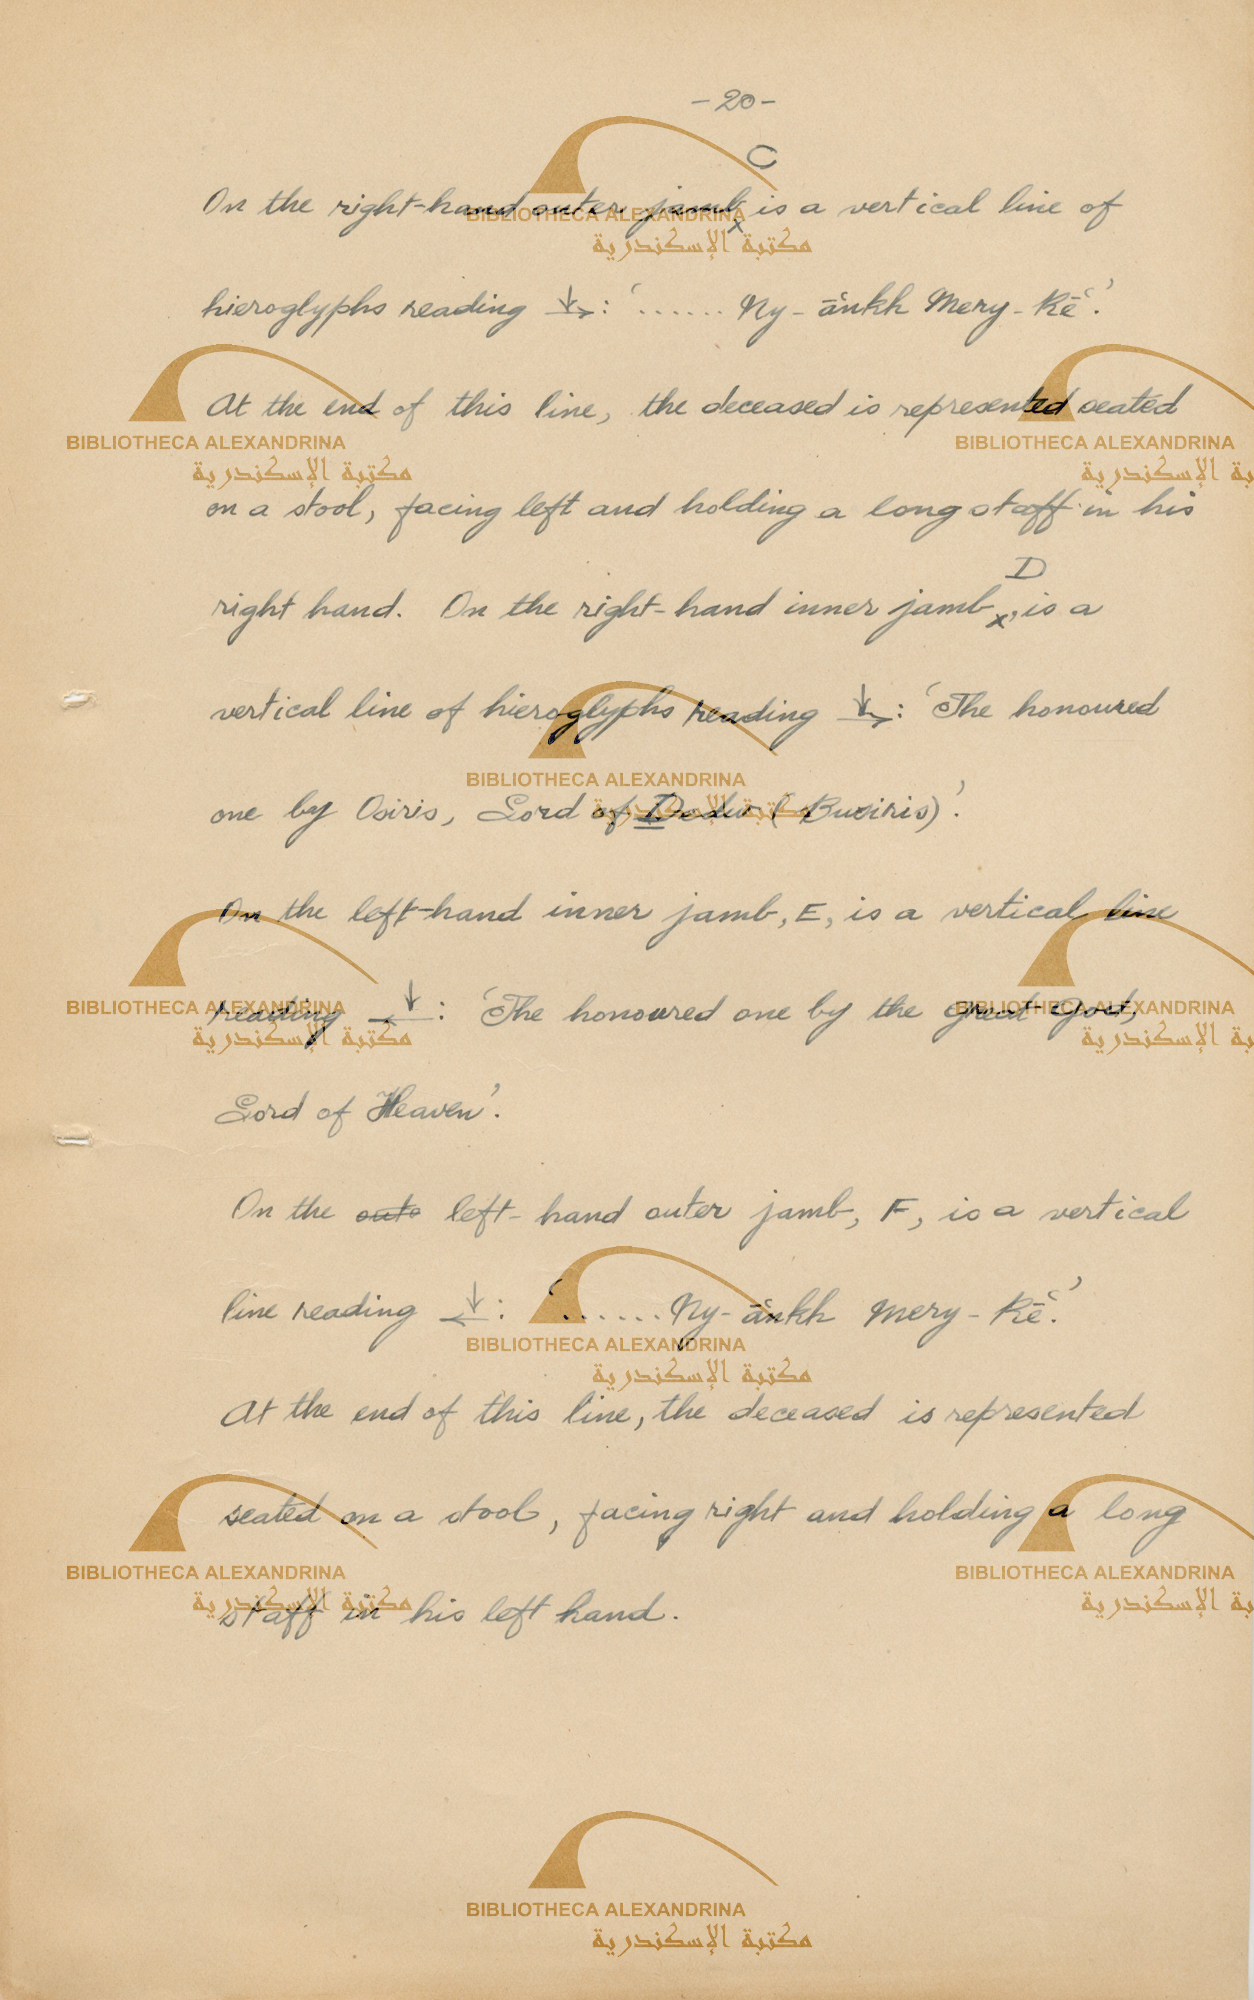 -20-
C
On the right-hand outer jamb x is a vertical line of
hieroglyphs reading ↓→: ‘...... Ny-ānkh Mery-Rē‘’.
At the end of this line, the deceased is represented seated
on a stool, facing left and holding a long staff in his
D
right hand. On the right-hand inner jamb x, is a
vertical line of hieroglyphs reading ↓→: ‘The honoured
one by Osiris, Lord of Dedw (Busiris)’.
On the left-hand inner jamb, E, is a vertical line
reading ←↓: ‘The honoured one by the Great God,
Lord of Heaven’.
On the oute left-hand outer jamb, F, is a vertical
line reading ←↓: ‘...... Ny-ānkh Mery-Rē‘’.
At the end of this line, the deceased is represented
seated on a stool, facing right and holding a long
staff in his left hand.
BIBLIOTHECA ALEXANDRINA
مكتبة الإسكندرية